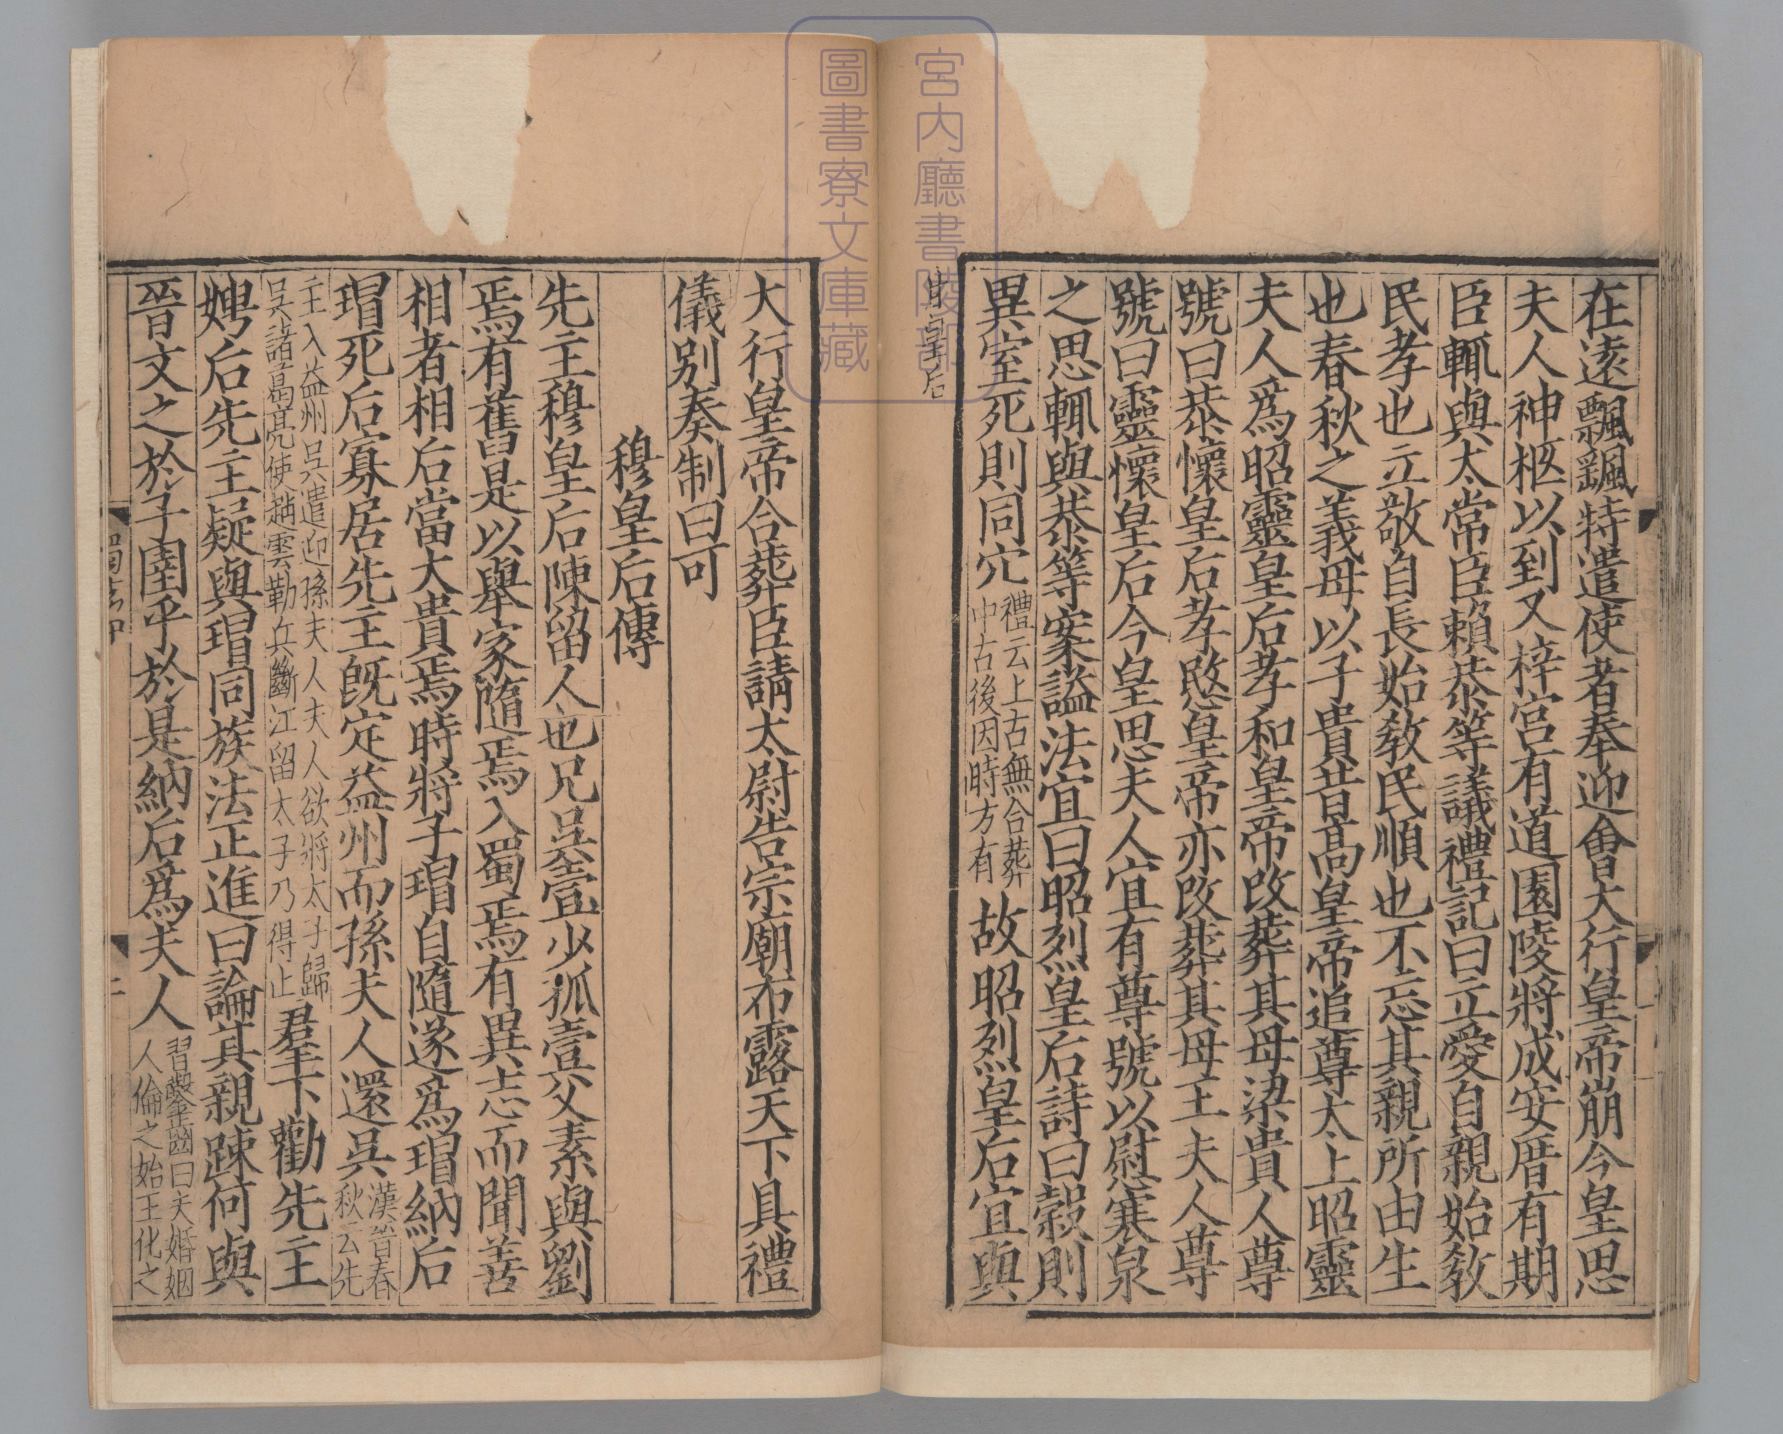 在遠飄颻特遣使者奉迎會大行皇帝崩今皇思
夫人神柩以到又梓宮有道園陵將成安厝有期
臣輒與太常臣賴恭等議禮記曰立愛自親始敎
民孝也立敬自長始敎民順也不忘其親所由生
也春秋之義母以子貴昔髙皇帝追尊太上昭靈
夫人爲昭靈皇后孝和皇帝改葬其母梁貴人尊
號曰恭懷皇后孝愍皇帝亦改葬其母王夫人尊
號曰靈懷皇后今皇思夫人宜有尊號以慰寒泉
之思輒與恭等案謚法宜曰昭烈皇后詩曰縠則
異室死則同穴
禮云上古無合葬
中古後因時方有
故昭烈皇后宜與
甘皇后
大行皇帝合葬臣請太尉告宗廟布露天下具禮
儀别奏制曰可
穆皇后傳
先主穆皇后陳留人也兄吳壹少孤壹父素與劉
焉有舊是以舉家隨焉入蜀焉有異志而聞善
相者相后當大貴焉時將子瑁自隨遂爲瑁納后
瑁死后寡居先主旣定益州而孫夫人還吳
漢晉春
秋云先
主入益州吳遣迎孫夫人夫人欲將太子歸
吳諸葛亮使趙雲勒兵斷江留太子乃得止
羣下勸先主
娉后先主疑與瑁同族法正進曰論其親踈何與
晉文之於子圉乎於是納后爲夫人
習鑿齒曰夫婚姻
人倫之始王化之
二
宮内廳書陵部
圖書寮文庫藏